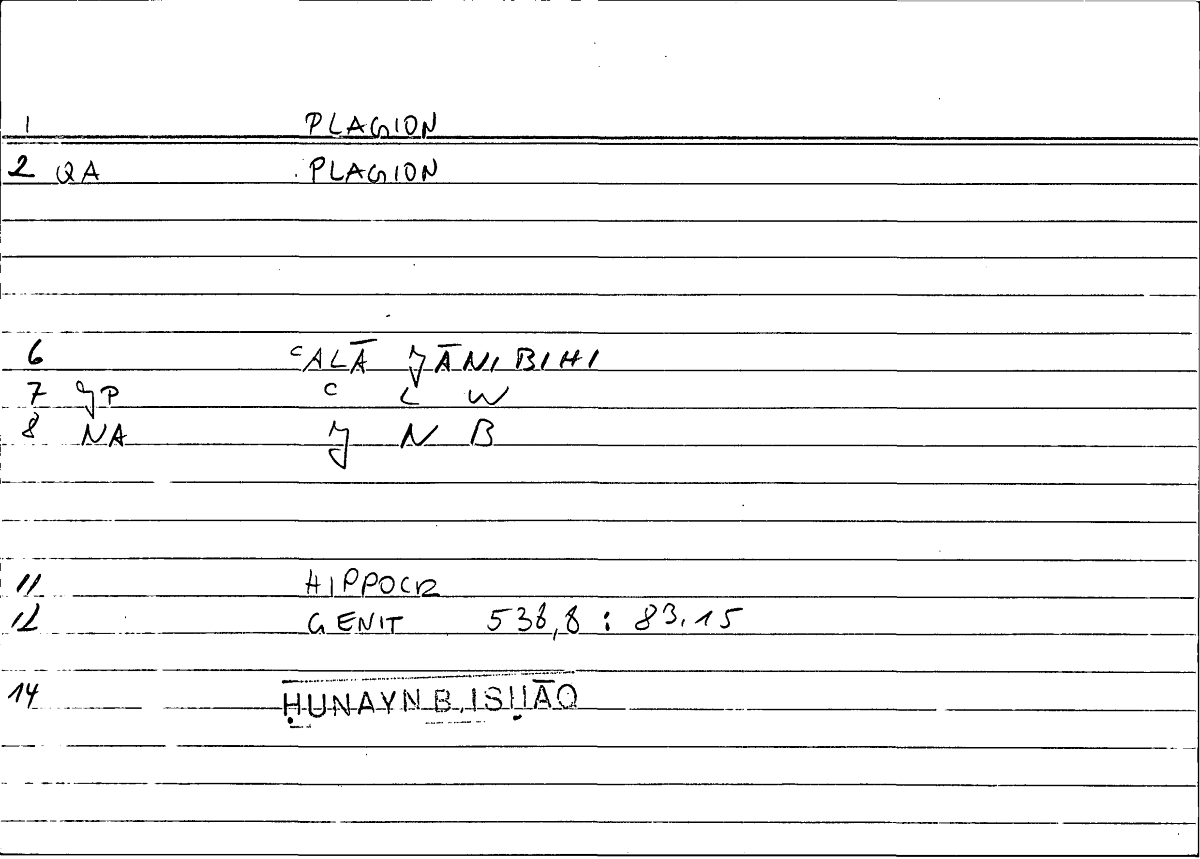 1 PLAGION
2 QA PLAGION
6 ᶜALĀ JĀNIBIHI
7 JP C L W
8 NA J N B
11 HIPPOCR
12 GENIT 538,8 : 83.15
14 ḤUNAYN B. ISḤĀQ